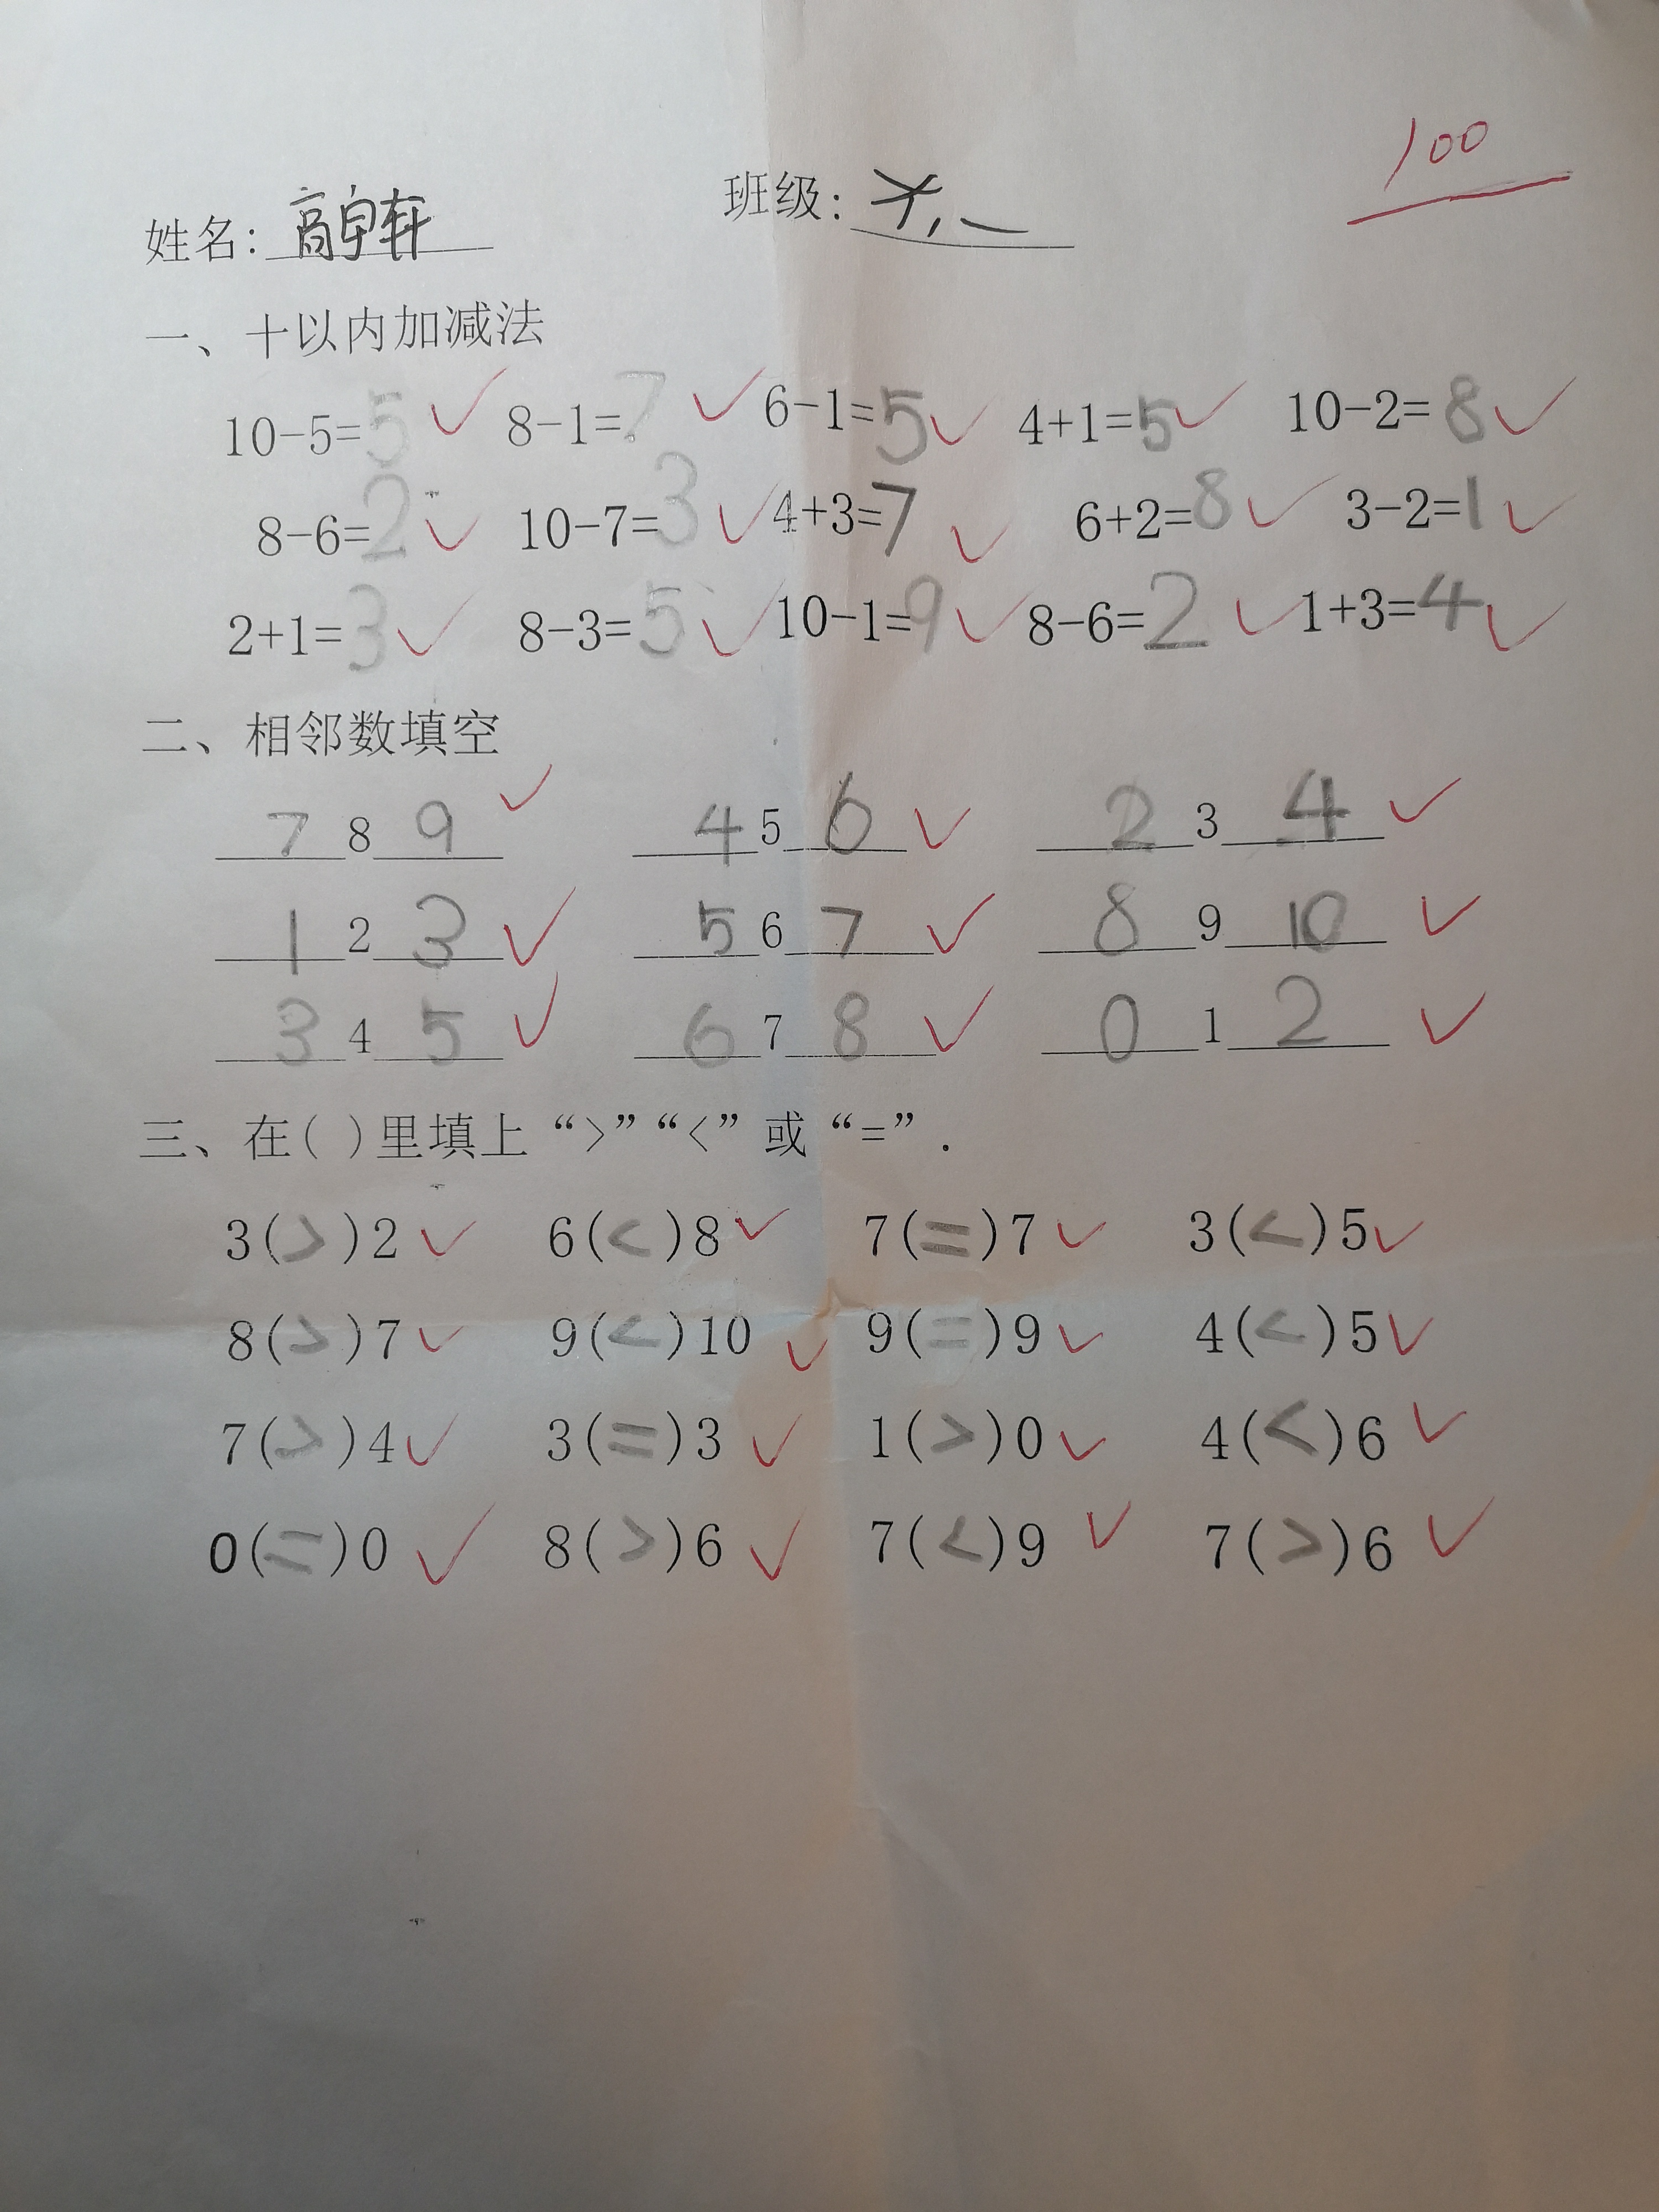 100
姓名：高卓轩 班级：大一
一、十以内加减法
10-5=5 8-1=7 6-1=5 4+1=5 10-2=8
8-6=2 10-7=3 4+3=7 6+2=8 3-2=1
2+1=3 8-3=5 10-1=9 8-6=2 1+3=4
二、相邻数填空
7 8 9 4 5 6 2 3 4
1 2 3 5 6 7 8 9 10
3 4 5 6 7 8 0 1 2
三、在( )里填上“>”“<”或“=”.
3(>)2 6(<)8 7(=)7 3(<)5
8(>)7 9(<)10 9(=)9 4(<)5
7(>)4 3(=)3 1(>)0 4(<)6
0(=)0 8(>)6 7(<)9 7(>)6